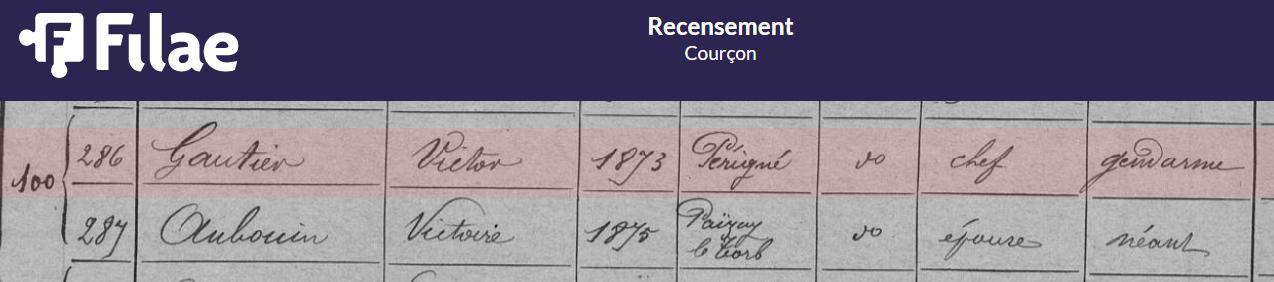 Filae
Recensement
Courçon
100
286 Gautier Victor 1873 Périgné do chef gendarme
287 Aubouin Victoire 1875 Païzay le Tort do épouse néant